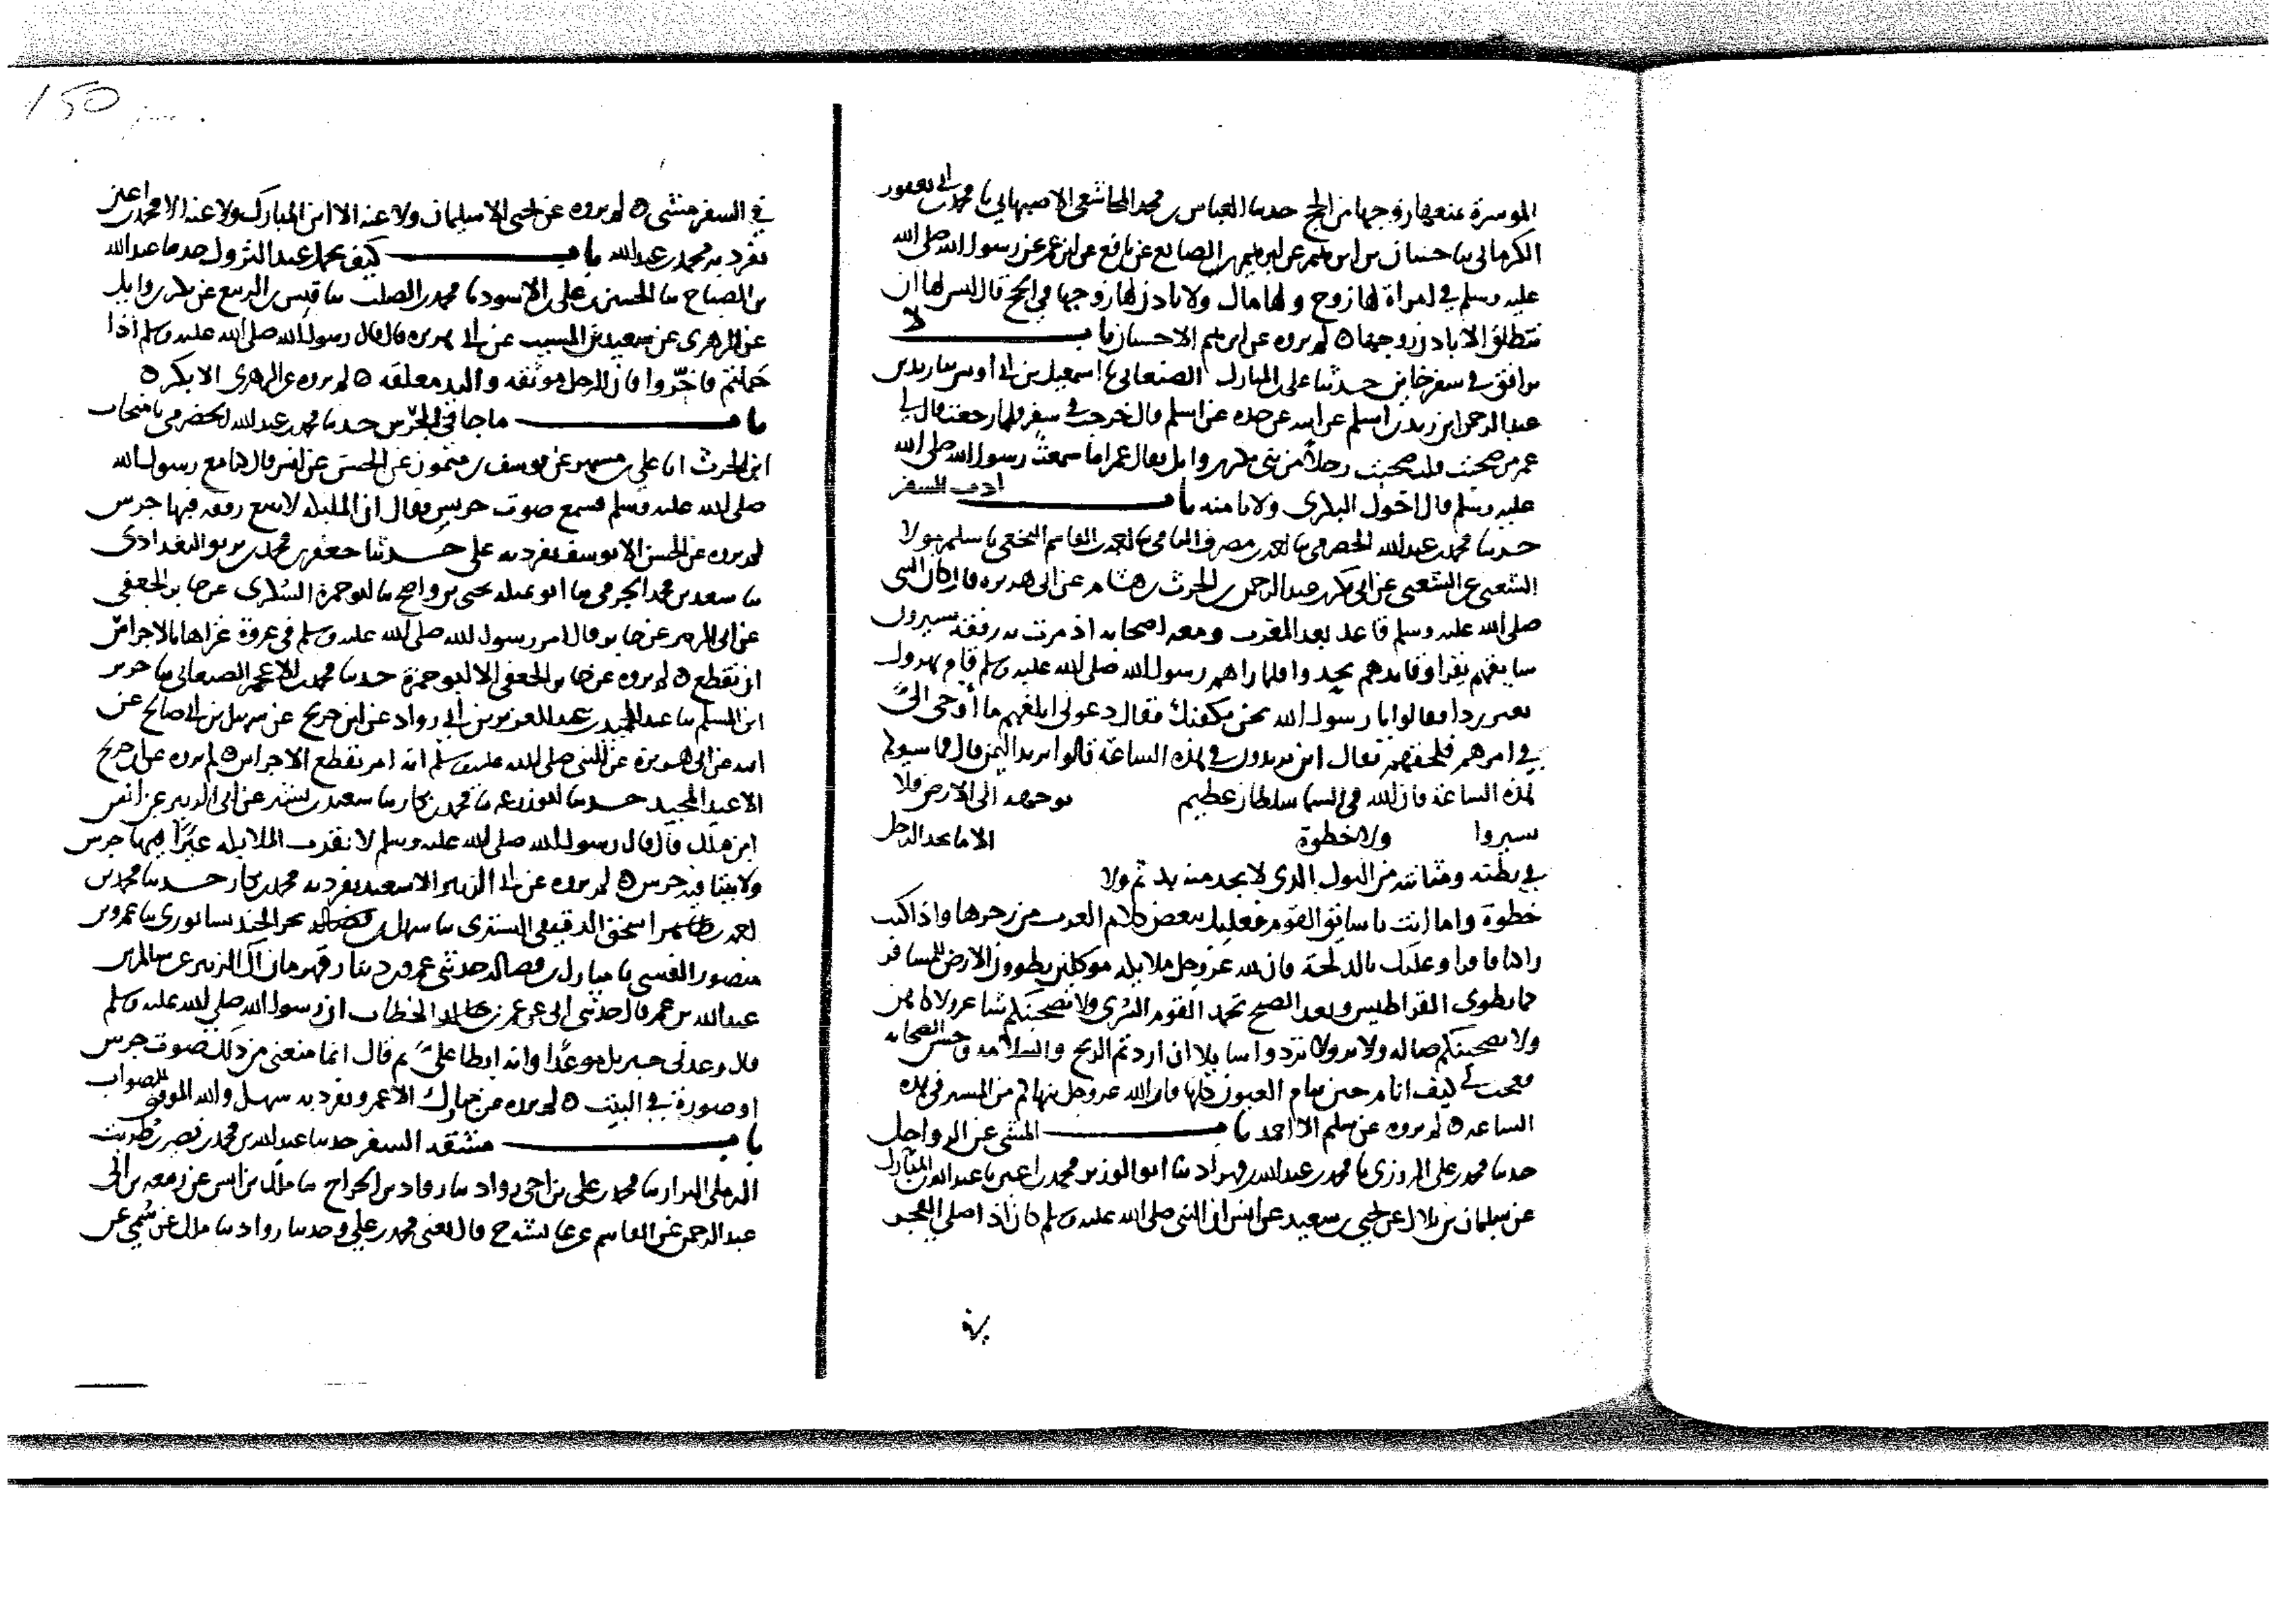 الموسرة يمنعها زوجها من الحج حدثنا العباس بن محمد المجاشعي الاصبهاني ثنا محمد بن ابي يعقوب
الكرماني ثنا حسان بن ابرهيم عن ابرهيم الصايغ عن نافع عن ابن عمر عن رسول الله صلى الله
عليه وسلم في امراة لها زوج ولها مال ولا ياذن لها زوجها في الحج قال ليس لها ان
تنطلق الا باذن زوجها ه لم يروه عن ابرهيم الا حسان باب لا
يرافق في سفر خاين حدثنا علي بن المبارك الصنعاني ثنا اسمعيل بن ابي اويس ثنا زيد بن
عبد الرحمن بن زيد بن اسلم عن ابيه عن جده عن اسلم قال خرجت في سفر فلما رجعت قال لي
عمر من صحبت قلت صحبت رجلا من بني بكر بن وايل فقال عمر اما سمعت رسول الله صلى الله
عليه وسلم قال اخوك البكري ولا تامنه باب ادب السفر
حدثنا محمد بن عبد الله الحضرمي ثنا احمد بن مصرف اليامي ثنا احمد بن القاسم النخعي ثنا سلم مولا
الشعبي عن الشعبي عن ابي بكر بن عبد الرحمن بن الحرث بن هشام عن ابي هريره قال كان النبي
صلى الله عليه وسلم قاعد بعد المغرب ومعه اصحابه اذ مرت به رفقة يسيرون
سايقهم يقرا وقايدهم يحدوا فلما راهم رسول الله صلى الله عليه وسلم قام يهرول
بغير ردا فقالوا يا رسول الله نحن نكفيك فقال دعوني ابلغهم ما أوحي اليّ
في امرهم فلحقهم فقال اين تريدون في هذه الساعة قالوا نريد اليمن قال فما سيركم
هذه الساعة فان لله في السما سلطان عظيم يوجهه الى الارض فلا
تسيروا ولا خطوة الا ما يجد الرجل
في بطنه ومثانته من البول الذي لا يجد منه بد ثم ولا
خطوة واما انت يا سايق القوم فعليك ببعض كلام العرب من زجرها واذا كنت
راكبا فاقرا وعليك بالدلجة فان لله عز وجل ملايكه موكلين يطوون الارض للمسافر
كما يطوى القراطيس وبعد الصبح تحمد القوم السرى ولا يصحبنكم شاعر ولا كاهن
ولا يصحبنكم ضاله ولا تردوا سايلا ان اردتم الربح والسلامه وحسن الصحابه
فعجبت لي كيف انام حين تنام العيون كلها فان الله عز وجل ينهاكم عن المسير في هذه
الساعه ه لم يروه عن سلم الا احمد باب المشي عن الرواحل
حدثنا محمد بن علي المروزي ثنا محمد بن عبد الله بن قهزاد ثنا ابو الوزير محمد بن اعين ثنا عبد الله بن المبارك
عن سليمان بن بلال عن يحيى بن سعيد عن انس ان النبي صلى الله عليه وسلم كان اذا صلى الفجر
150
في السفر مشى ه لم يروه عن يحيى الا سليمان ولا عنه الا ابن المبارك ولا عنه الا محمد بن اعين
تفرد به محمد بن عبد الله باب كيف يحمل عند النزول حدثنا عبد الله
بن الصباح ثنا الحسين بن علي بن الاسود ثنا محمد بن الصلت ثنا قيس بن الربيع عن بكر بن وايل
عن الزهري عن سعيد بن المسيب عن ابي هريره قال قال رسول الله صلى الله عليه وسلم اذا
حملتم فاخّروا فان الرجل موثقه واليد معلقه ه لم يروه عن الزهري الا بكر ه
باب ما جا في الجرس حدثنا محمد بن عبد الله الحضرمي ثنا منجاب
ابن الحرث انا علي بن مسهر عن يوسف بن ميمون عن الحسن عن انس قال كنا مع رسول الله
صلى الله عليه وسلم فسمع صوت جرس فقال ان الملايكه لا تتبع رفقه فيها جرس
لم يروه عن الحسن الا يوسف تفرد به علي حدثنا جعفر بن محمد بن بريق البغدادي
ثنا سعيد بن محمد الجرمي ثنا ابو تميله يحيى بن واضح ثنا ابو حمزة السُكري عن جابر الجعفي
عن ابي الزبير عن جابر قال امر رسول الله صلى الله عليه وسلم في غزوة غزاها بالاجراس
ان تقطع ه لم يروه عن جابر الجعفي الا ابو حمزة حدثنا محمد بن الاعجم الصنعاني ثنا حريز
ابن المسلم ثنا عبد المجيد بن عبد العزيز بن ابي رواد عن ابن جريج عن سهيل بن ابي صالح عن
ابيه عن ابي هريرة عن النبي صلى الله عليه وسلم انه امر بقطع الاجراس ه لم يروه عن ابن جريج
الا عبد المجيد حدثنا ابو زرعه ثنا محمد بن بكار ثنا سعيد بن بشير عن ابي الزبير عن انس
ابن ملك قال قال رسول الله صلى الله عليه وسلم لا تقرب الملايكه عيرًا فيها جرس
ولا بيتا فيه جرس ه لم يروه عن ابي الزبير الا سعيد تفرد به محمد بن بكار حدثنا محمد بن
احمد اسحق الدقيقي التستري ثنا سهل بن بحر الجنديسابوري ثنا عمرو بن
منصور القيسي ثنا مبارك بن فضاله حدثني عمرو بن دينار قهرمان آل الزبير عن سالم بن
عبد الله بن عمر قال حدثني ابي عن عمر بن الخطاب ان رسول الله صلى الله عليه وسلم
قال وعدني جبريل موعدا وانه ابطا عليّ ثم قال انما منعني من ذلك صوت جرس
او صورة في البيت ه لم يروه عن مبارك الا عمرو تفرد به سهل والله الموفق للصواب
باب مشقة السفر حدثنا عبد الله بن محمد بن نصر بن طويث
الرملي البزار ثنا محمد بن علي بن اخي رواد ثنا رواد بن الجراح ثنا ملك بن انس عن ربيعه بن ابي
عبد الرحمن عن القاسم عن عايشه ح قال يعني محمد بن علي وحدثنا رواد ثنا ملك عن سُمي عن